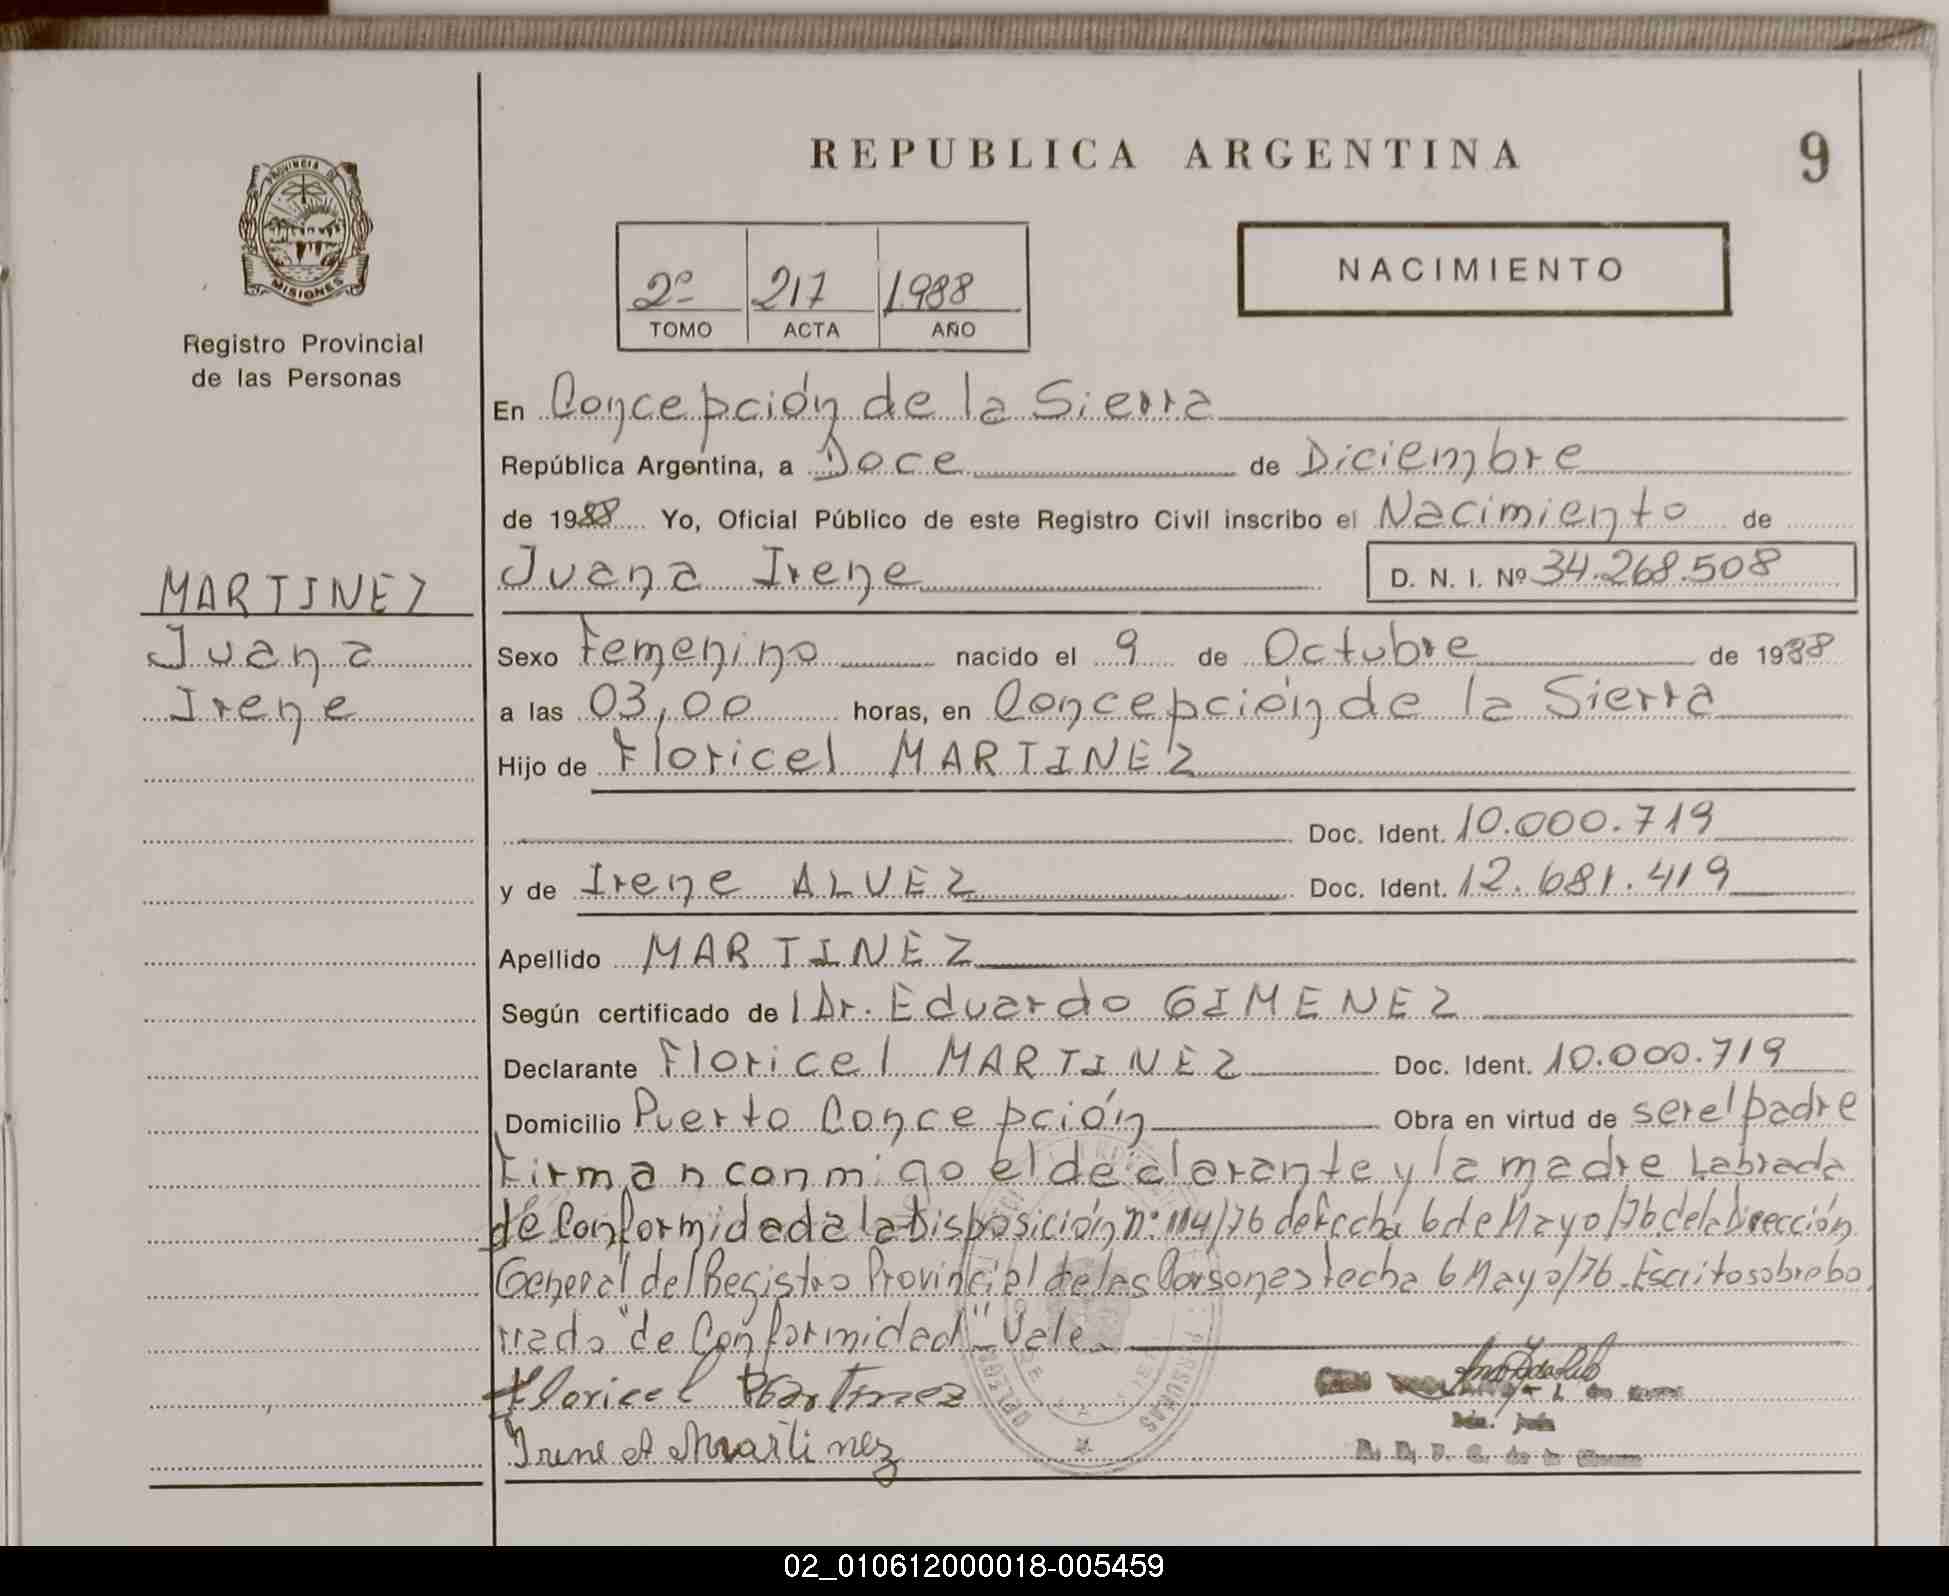 REPUBLICA ARGENTINA
9
PROVINCIA DE
MISIONES
Registro Provincial
de las Personas
2º 217 1988
TOMO ACTA AÑO
NACIMIENTO
En Concepción de la Sierra
República Argentina, a Doce de Diciembre
de 1988 Yo, Oficial Público de este Registro Civil inscribo el Nacimiento de
Juana Irene D. N. I. Nº 34.268.508
MARTINEZ
Juana
Irene
Sexo Femenino nacido el 9 de Octubre de 1988
a las 03,00 horas, en Concepción de la Sierra
Hijo de Floricel MARTINEZ
Doc. Ident. 10.000.719
y de Irene ALVEZ Doc. Ident. 12.681.419
Apellido MARTINEZ
Según certificado de Dr. Eduardo GIMENEZ
Declarante Floricel MARTINEZ Doc. Ident. 10.000.719
Domicilio Puerto Concepción Obra en virtud de ser el padre
Firman conmigo el declarante y la madre Labrada
de Conformidad a la Disposición Nº 114/76 de Fecha 6 de Mayo/76 de la Dirección
General del Registro Provincial de las Personas fecha 6 Mayo/76. Escrito sobre bo
rrado "de Conformidad" Vale
Floricel Martinez
Irene A Martinez
02_010612000018-005459